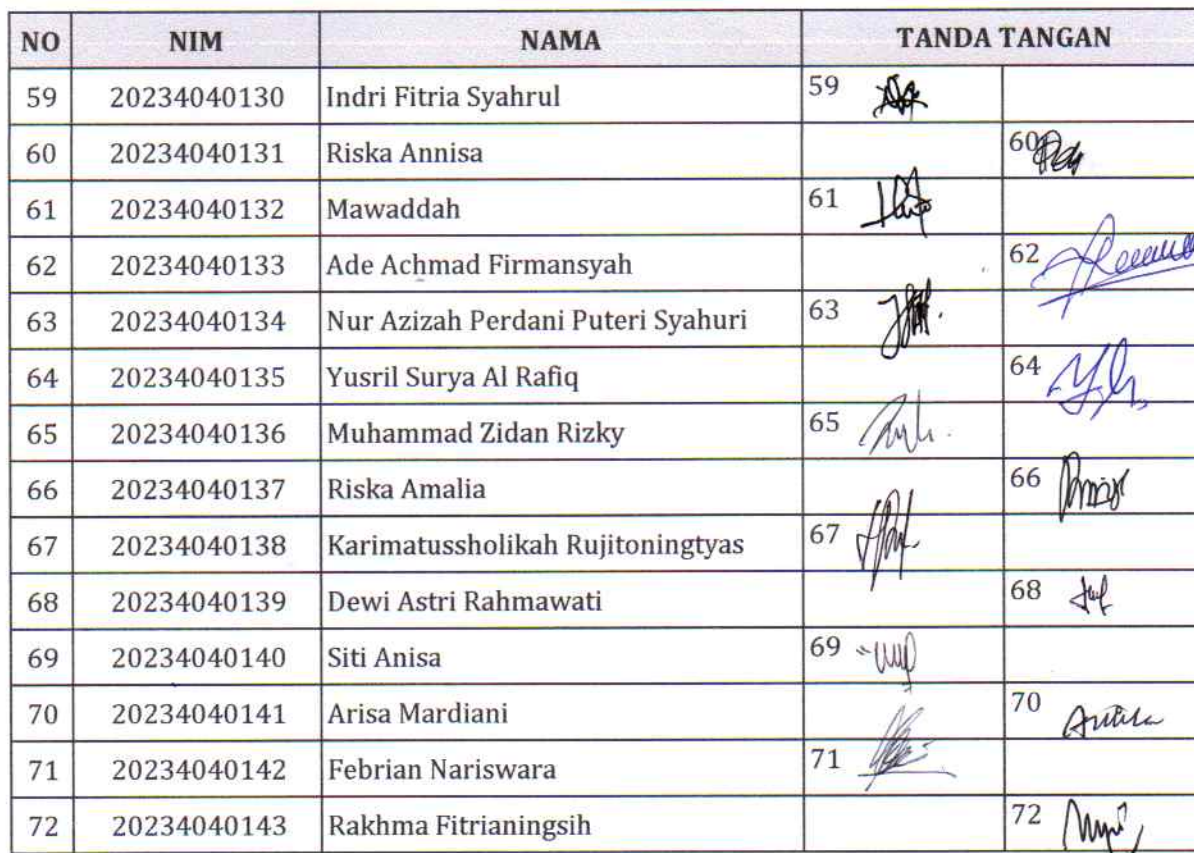 NO NIM NAMA TANDA TANGAN
59 20234040130 Indri Fitria Syahrul 59
60 20234040131 Riska Annisa 60
61 20234040132 Mawaddah 61
62 20234040133 Ade Achmad Firmansyah 62
63 20234040134 Nur Azizah Perdani Puteri Syahuri 63
64 20234040135 Yusril Surya Al Rafiq 64
65 20234040136 Muhammad Zidan Rizky 65
66 20234040137 Riska Amalia 66
67 20234040138 Karimatussholikah Rujitoningtyas 67
68 20234040139 Dewi Astri Rahmawati 68
69 20234040140 Siti Anisa 69
70 20234040141 Arisa Mardiani 70
71 20234040142 Febrian Nariswara 71
72 20234040143 Rakhma Fitrianingsih 72